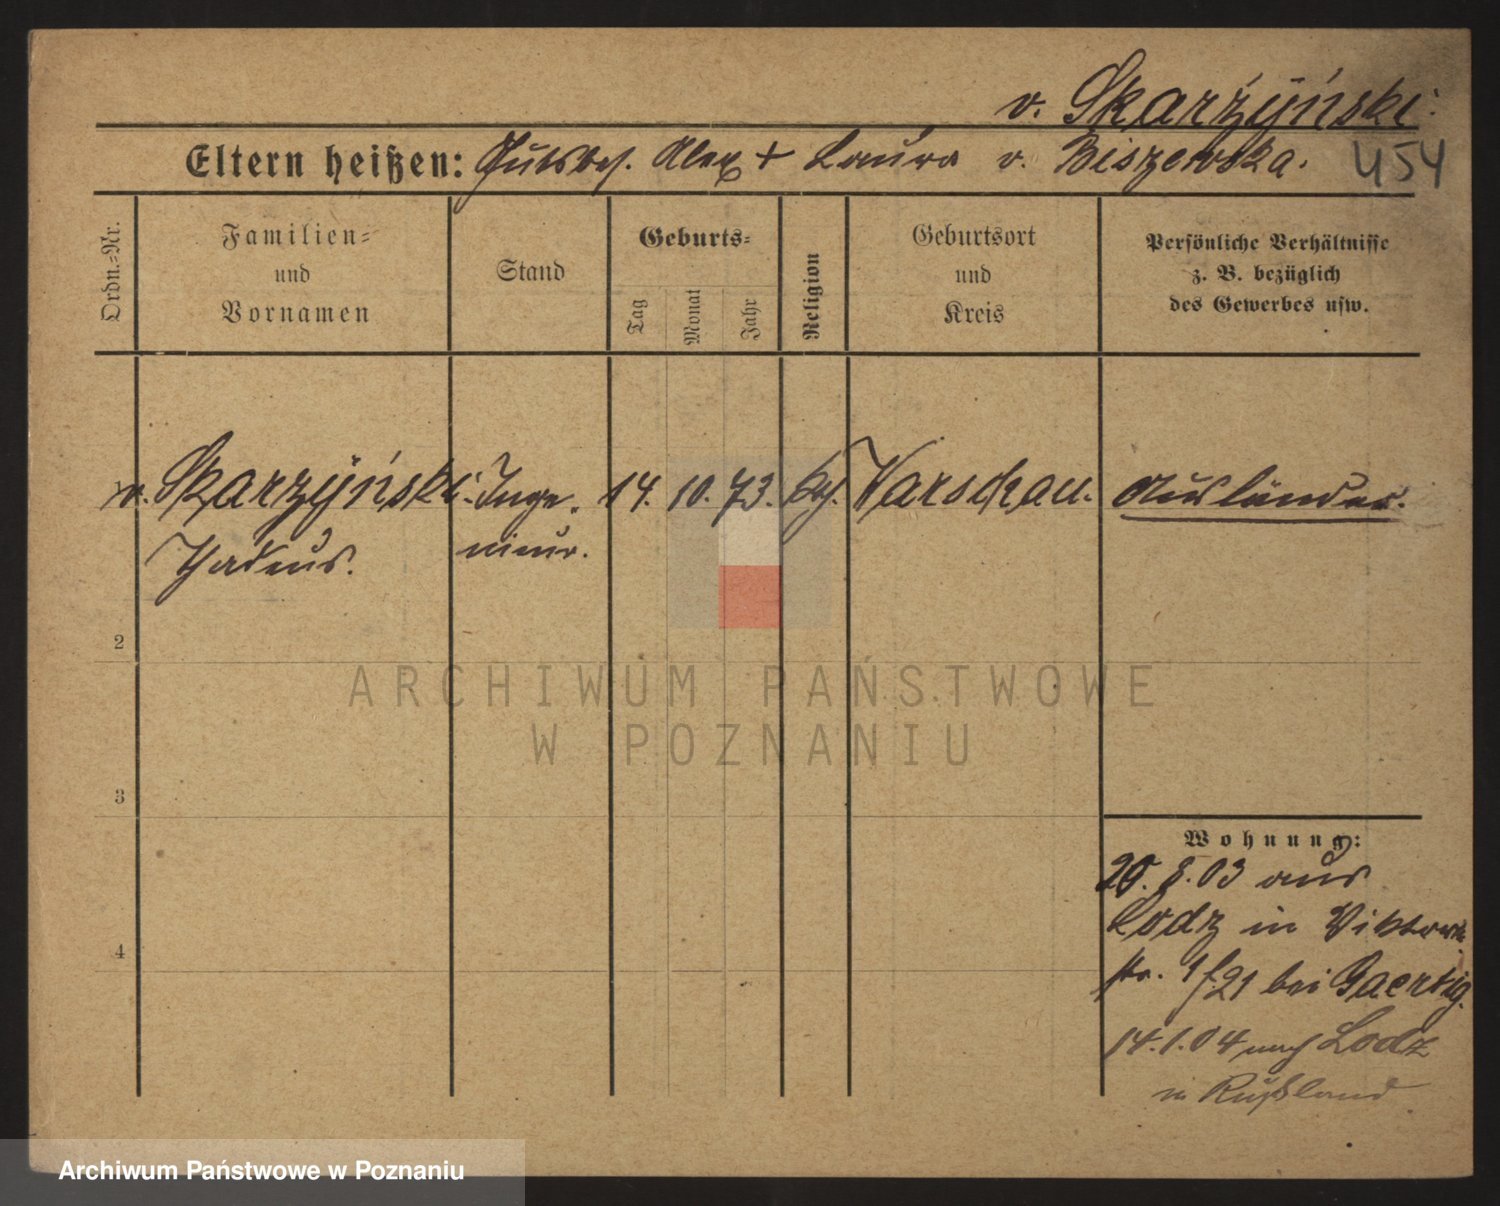 v. Skarżyński.
Eltern heißen: Gutsbes. Alex + Laura v. Biszewska. 454
Ordn.-Nr.
Familien-
und
Vornamen
Stand
Geburts-
Tag
Monat
Jahr
Religion
Geburtsort
und
Kreis
Persönliche Verhältnisse
z. B. bezüglich
des Gewerbes usw.
v. Skarzyński. Inge- 14. 10. 73. Warschau. Ausländer.
Thadeus. nieur.
2
ARCHIWUM PAŃSTWOWE
W POZNANIU
3
Wohnung:
8.03 aus
4
Lodz in Viktoria
str. 21 bei Gaertig.
14.1.04 nach Lodz
in Rußland
Archiwum Państwowe w Poznaniu